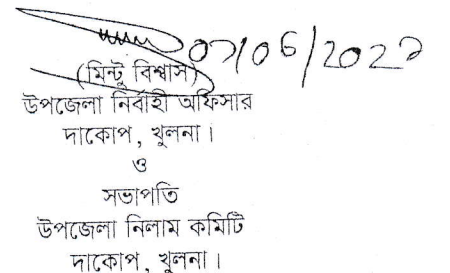 (মিন্টু বিশ্বাস)
উপজেলা নির্বাহী অফিসার
দাকোপ, খুলনা।
ও
সভাপতি
উপজেলা নিলাম কমিটি
দাকোপ, খুলনা।